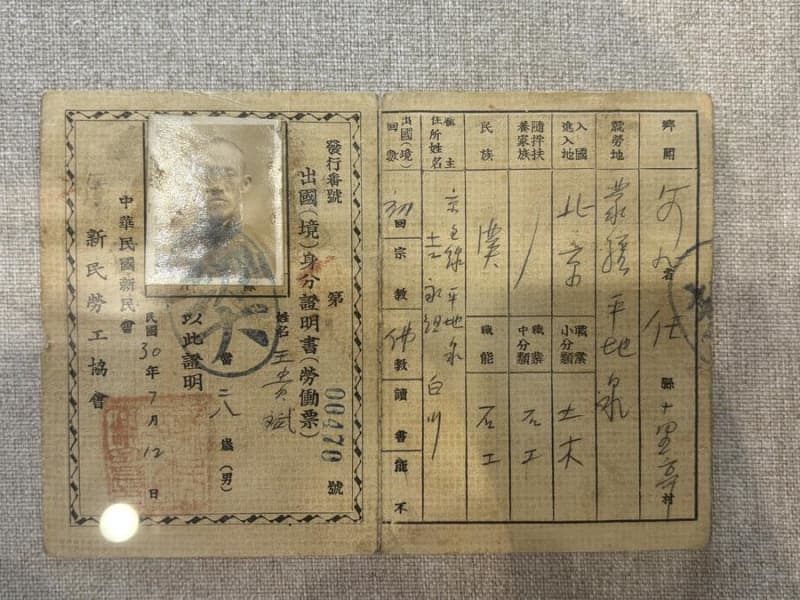 鄉關 河北省任縣十里亭村
就勞地 蒙疆平地泉
入國進入地 北京 職業小分類 土木
隨拌扶養家族 職業中分類 石工
民族 漢 職能 石工
雇主住所姓名 京包線平地泉 吉永組 白川
出國(境)回數 初回 宗教 佛教 讀書 能不
發行番號 第 00470 號
出國(境)身分證明書(勞働票)
姓名 王貴斌
當二八歲(男)
以此證明
民國30年7月12日
中華民國新民會
新民勞工協會